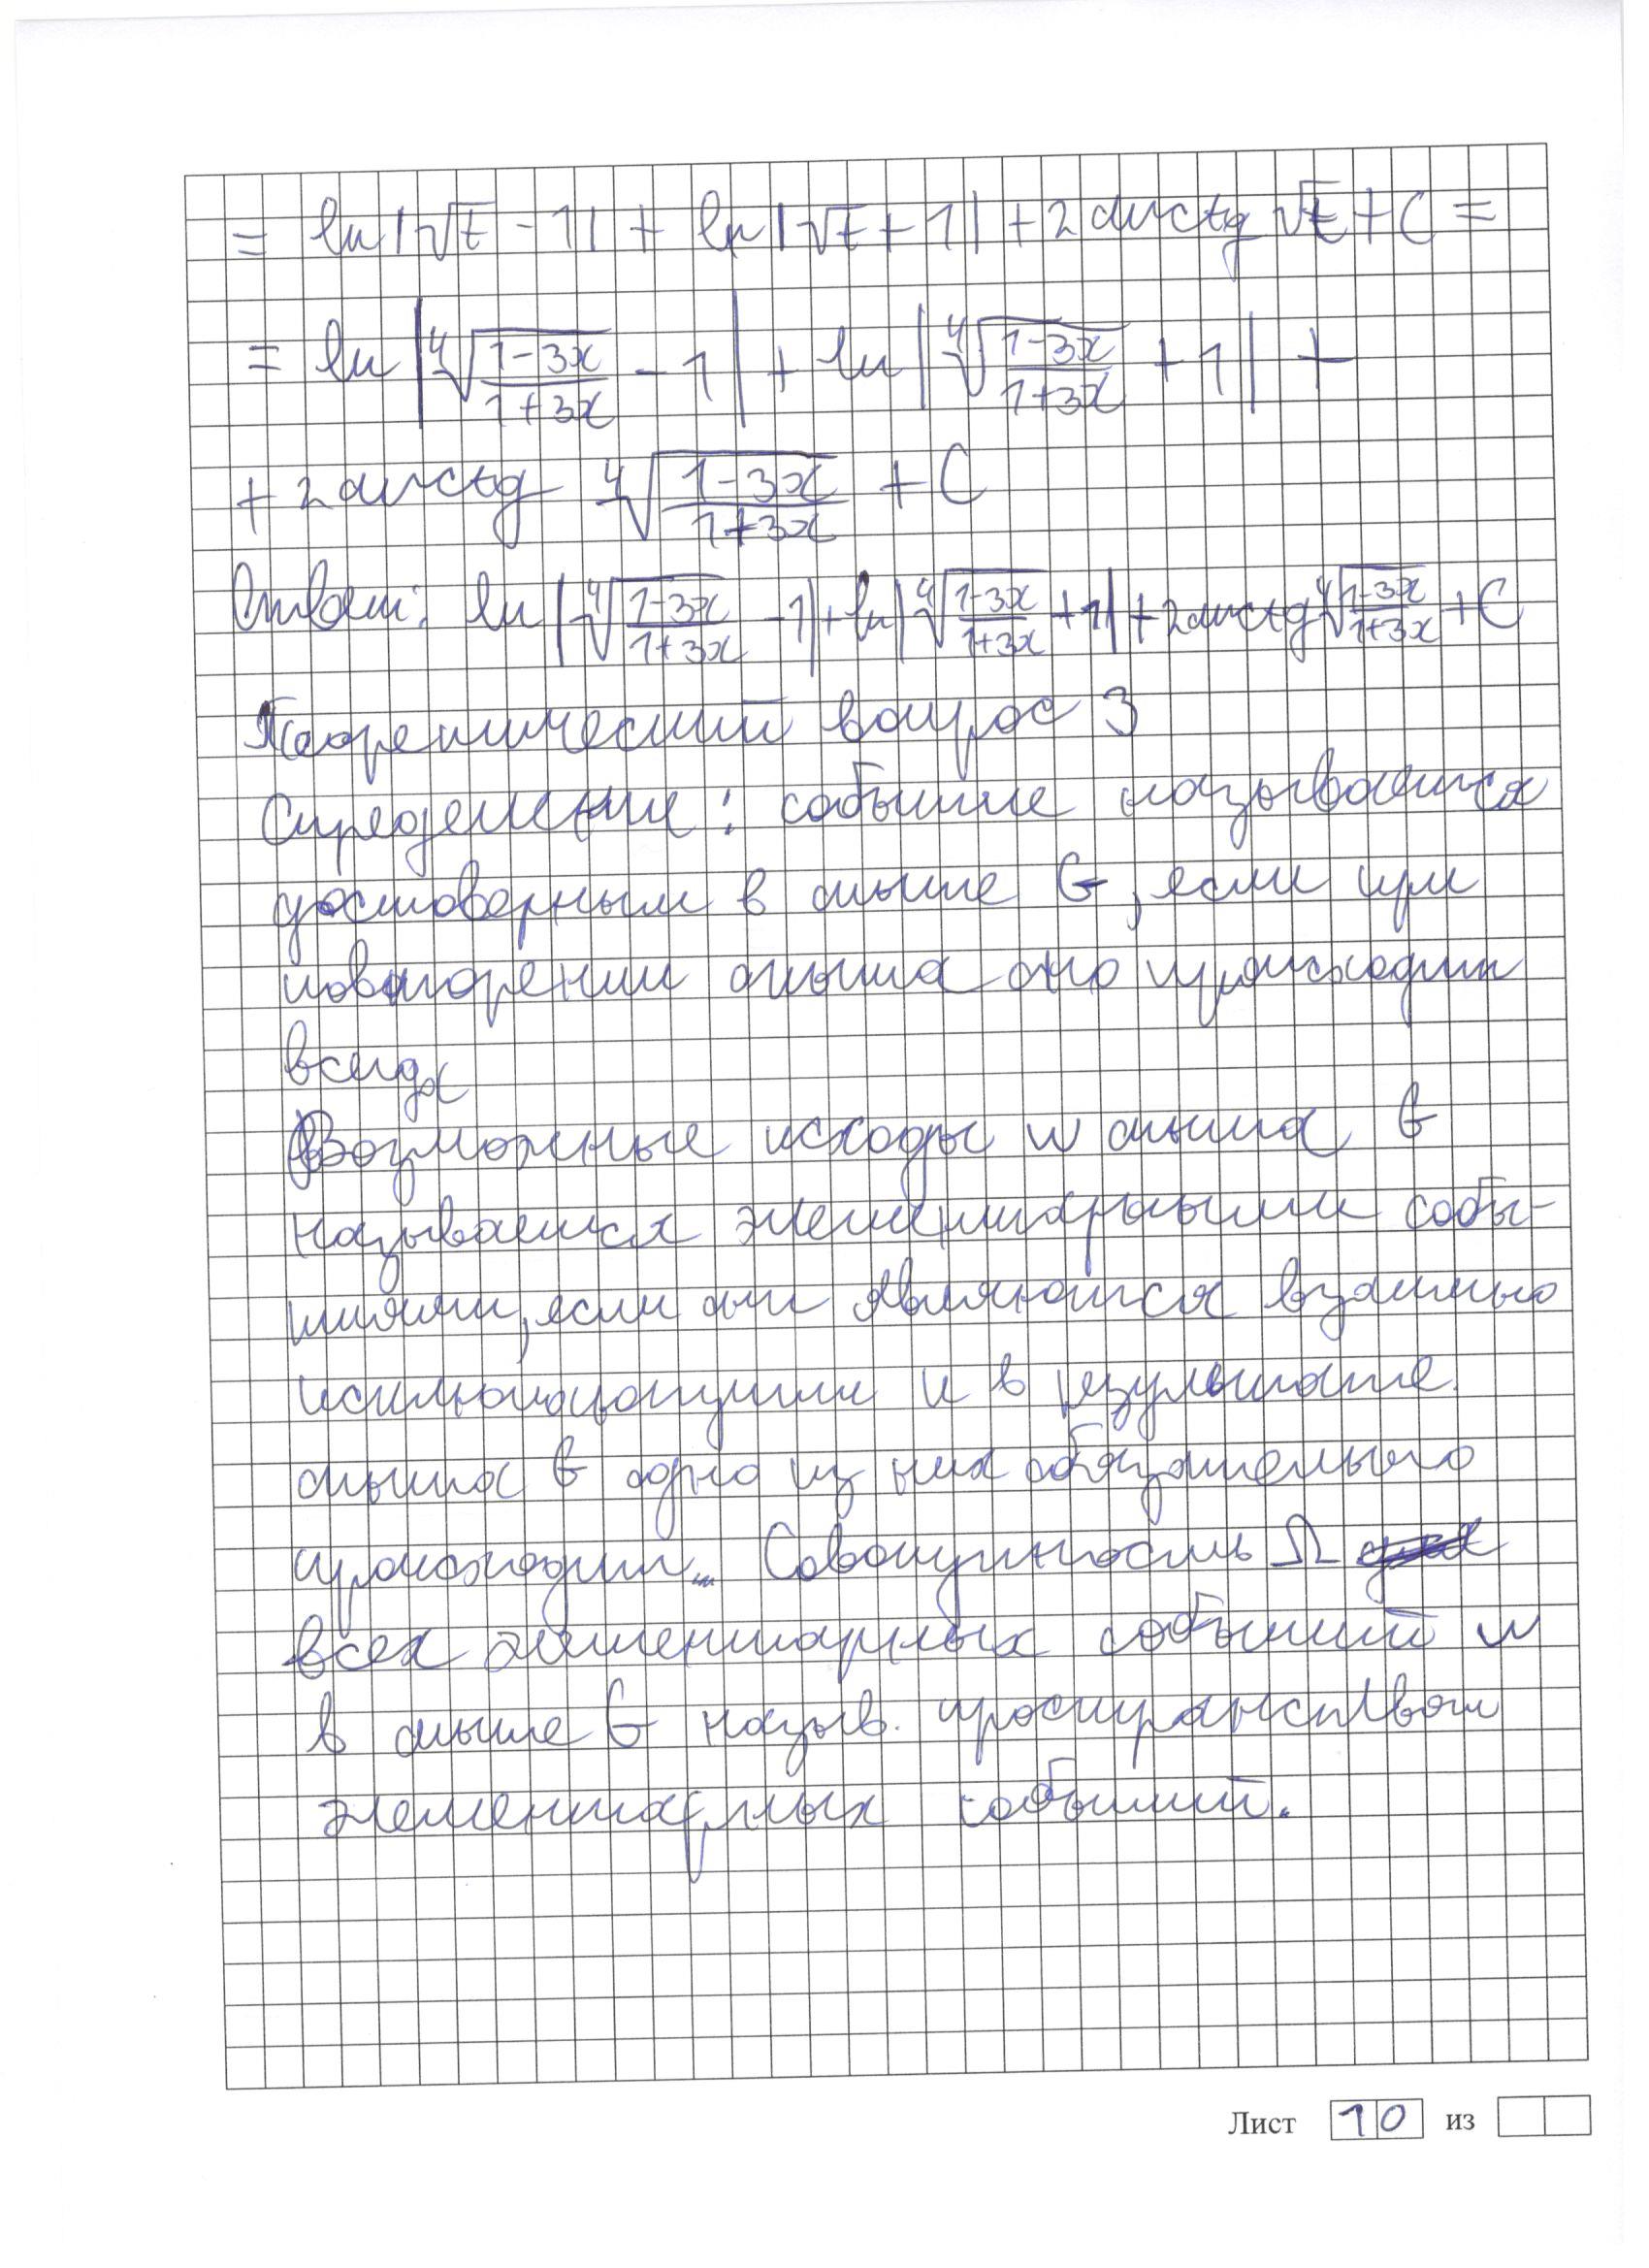 = ln|√t - 1| + ln|√t + 1| + 2arctg √t + C =
= ln|⁴√((1-3x)/(1+3x)) - 1| + ln|⁴√((1-3x)/(1+3x)) + 1| +
+ 2arctg ⁴√((1-3x)/(1+3x)) + C
Ответ: ln|⁴√((1-3x)/(1+3x)) - 1| + ln|⁴√((1-3x)/(1+3x)) + 1| + 2arctg ⁴√((1-3x)/(1+3x)) + C
Теоретический вопрос 3
Определение: событие называется
достоверным в опыте G, если при
повторении опыта оно происходит
всегда
Возможные исходы w опыта G
называется элементарными собы-
тиями, если они являются взаимно
исключающими и в результате
опыта G одно из них обязательно
происходит... Совокупность Ω
всех элементарных событий w
в опыте G назыв. пространством
элементарных событий.
Лист 10 из